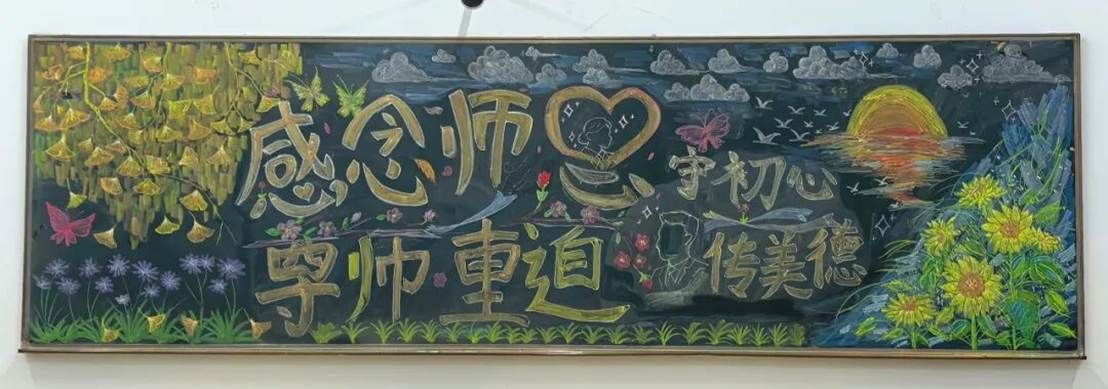 感念师恩
尊师重道
守初心
传美德